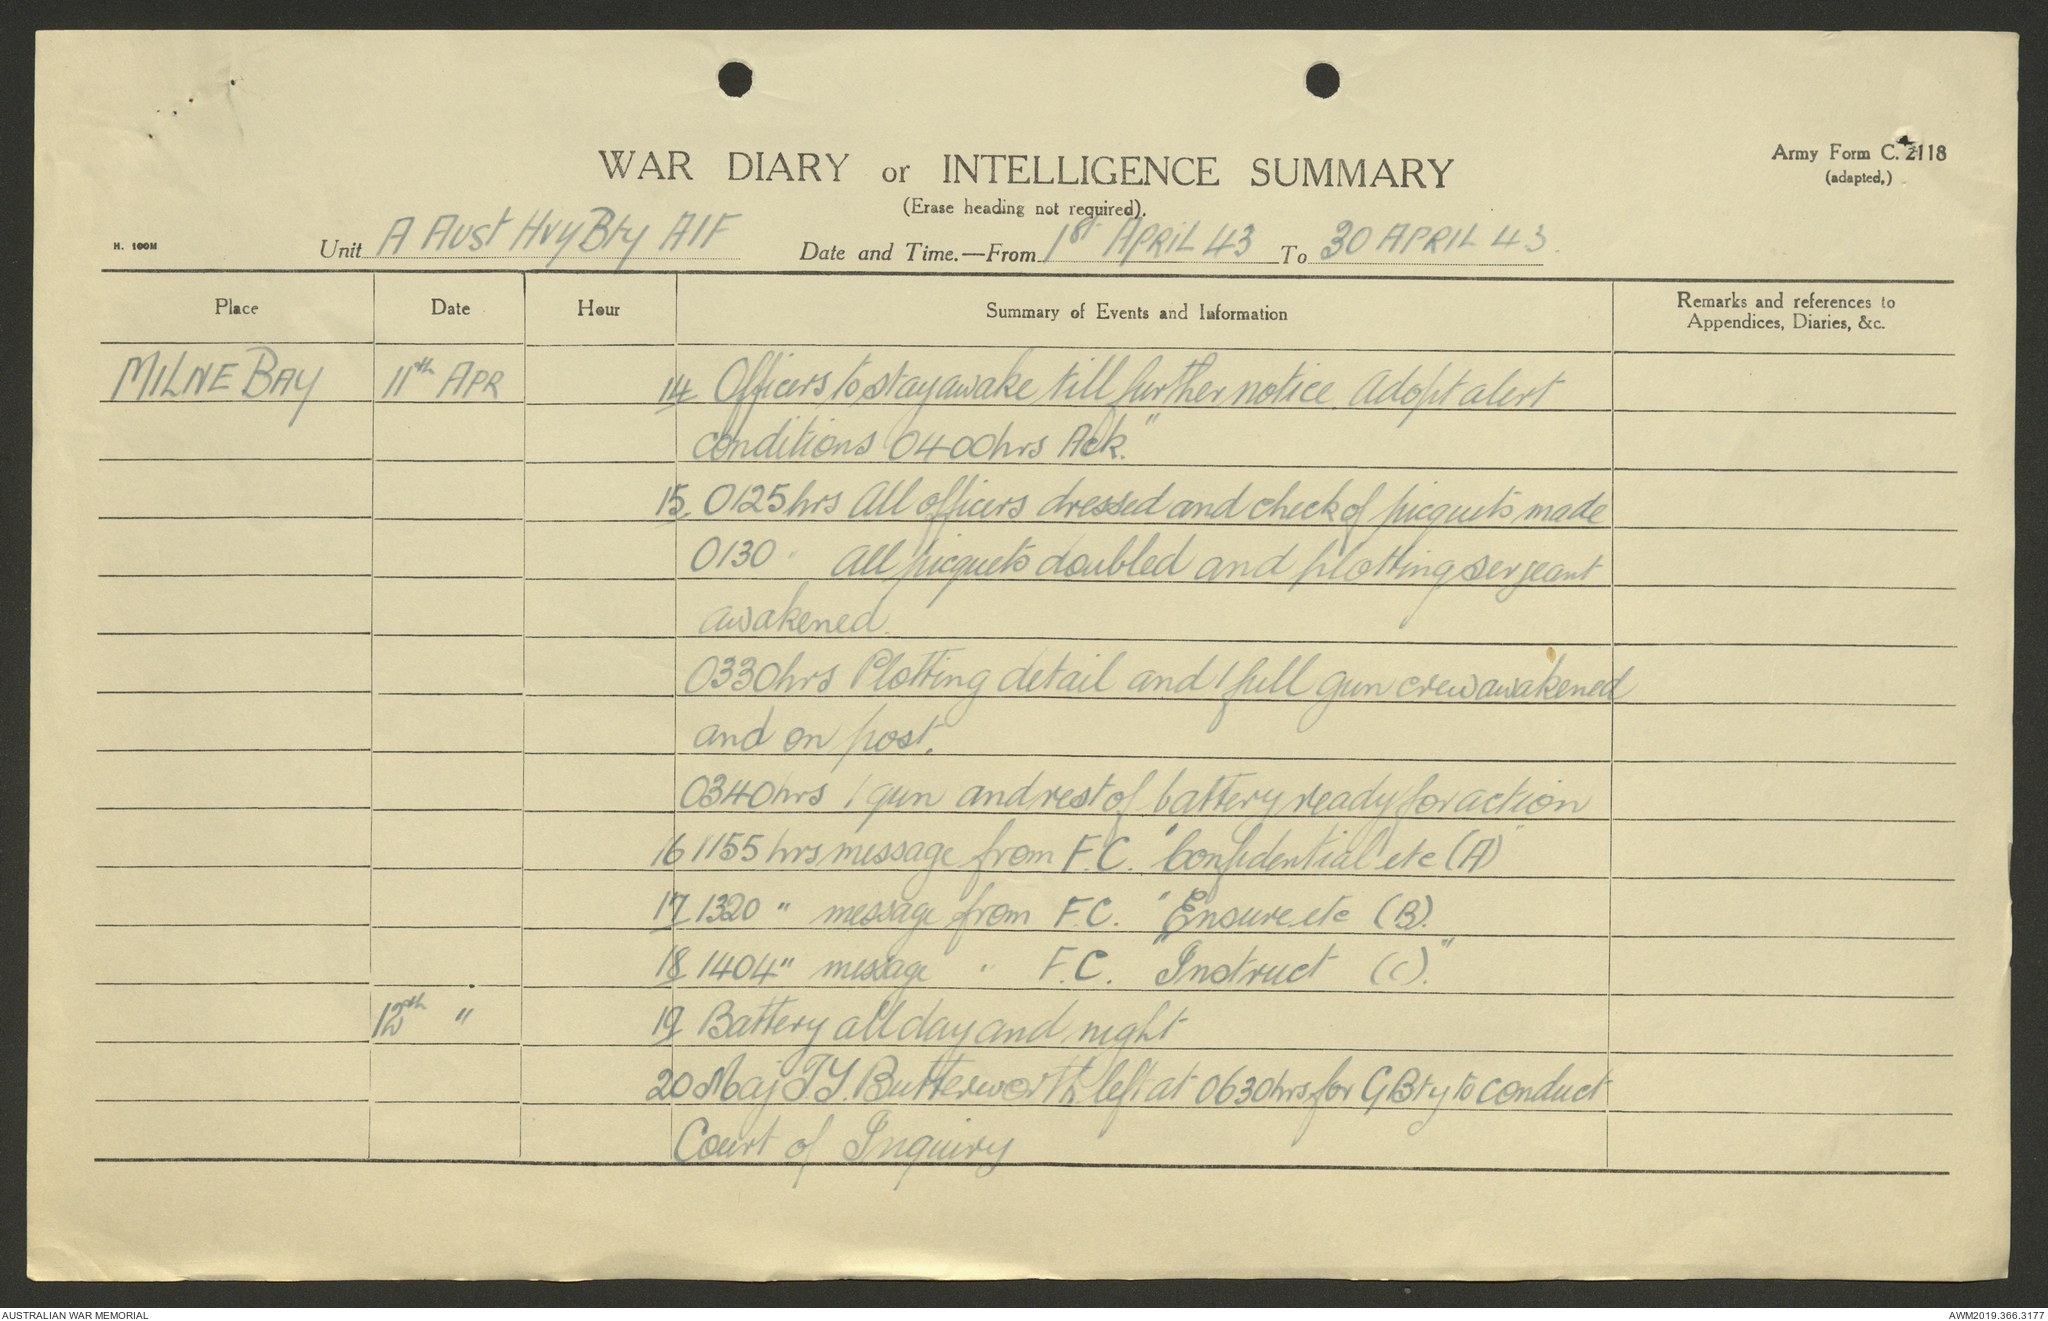 WAR DIARY or INTELLIGENCE SUMMARY
(Erase heading not required).
Army Form C. 2118
(adapted.)
H. 100M
Unit A Aust Hvy Bty AIF Date and Time.—From 1st APRIL 43 To 30 APRIL 43.
Place Date Hour Summary of Events and Information Remarks and references to Appendices, Diaries, &c.
MILNE BAY 11th APR 14 Officers to stay awake till further notice. Adopt alert
conditions 0400hrs Ack."
15 0125hrs All officers dressed and check of picquets made
0130 " All picquets doubled and plotting sergeant
awakened.
0330hrs Plotting detail and 1 full gun crew awakened
and on post.
0340hrs 1 gun and rest of battery ready for action
16 1155 hrs message from F.C. "Confidential etc (A)"
17 1320 " message from F.C. "Ensure etc (B).
18 1404 " message " F.C. "Instruct (C)."
12th " 19 Battery all day and night
20 Maj T.Y. Butterworth left at 0630hrs for G Bty to conduct
Court of Inquiry
AUSTRALIAN WAR MEMORIAL
AWM2019.366.3177